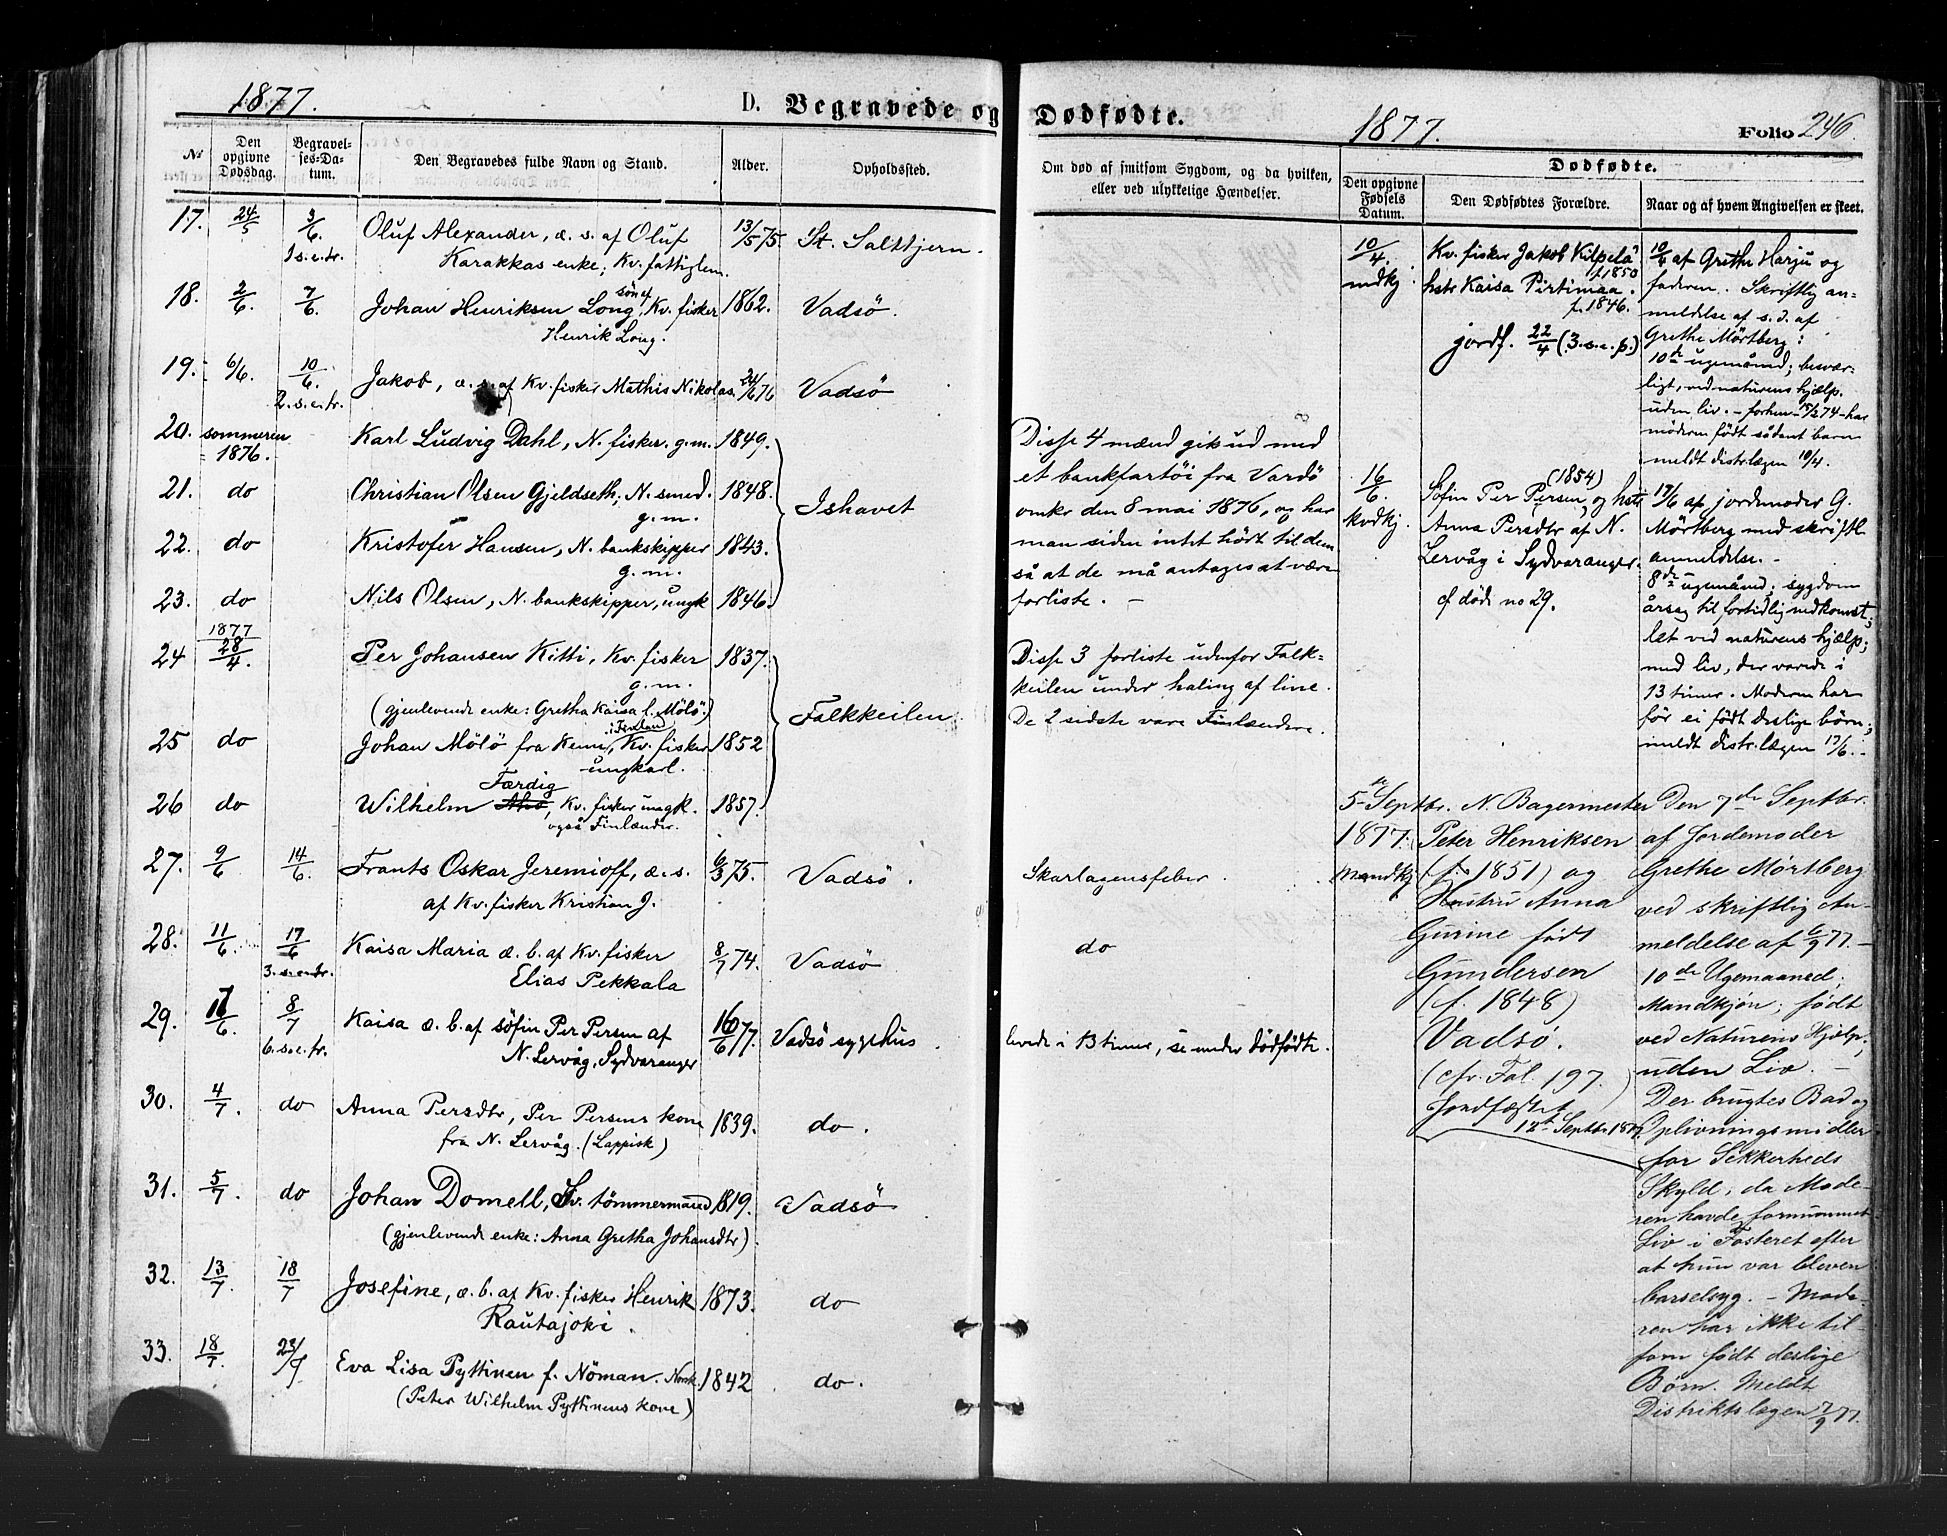 1877.
D. Begravede og Dødfødte.
1877.
Folio 246
№
Den opgivne Dødsdag.
Begravelses-Datum.
Den Begravedes fulde Navn og Stand.
Alder.
Opholdssted.
Om død af smitsom Sygdom, og da hvilken,
eller ved ulykkelige Hændelser.
Dødfødte.
Den opgivne Fødsels Datum.
Den Dødfødtes Forældre.
Naar og af hvem Angivelsen er skeet.
17. 24/5 3/6. Oluf Alexander, æ. s. af Oluf 13/5 75. St. Saltbjern.
1 s. e. tr. Karakkas enke; Kv. fattiglem.
18. 2/6. 7/6. Johan Henriksen Long, søn af Kv. fisker 1862. Vadsö.
Henrik Long.
19. 6/6. 10/6. Jakob, æ. s. af Kv. fisker Mathis Nikolas. 24/6 76 Vadsö
2. s. e. tr.
20. sommeren Karl Ludvig Dahl, N. fisker. g. m. 1849.
1876.
21. do Christian Olsen Gjeldseth, N. smed. 1848. Ishavet
g. m.
22. do Kristofer Hansen, N. bankskipper 1843.
g. m.
23. do Nils Olsen, N. bankskipper, ungk 1846.
1877
24 28/4. Per Johansen Kitti, Kv. fisker 1837.
g. m.
(gjenlevende enke: Gretha Kaisa f. Mölö.) Falkkeilen
25 do Johan Mölö fra Kemi, i Finland Kv. fisker 1852
ungkarl.
Færdig
26 do Wilhelm , Kv. fisker ungk. 1857.
også Finlænder.
27. 9/6 14/6. Frants Oskar Jeremioff, æ. s. 6/3 75. Vadsö.
af Kv. fisker Kristian J.
28. 11/6. 17/6 Kaisa Maria æ. b. af Kv. fisker 8/7 74. Vadsö
3. s. e. tr. Elias Pekkala
29. 17/6. 8/7 Kaisa æ. b. af söfin Per Persen af 16/6 77. Vadsö sygehus.
6. s. e. tr. N. Lervåg, Sydvaranger
30. 4/7. do Anna Persdtr, Per Persens kone 1839. do.
fra N. Lervåg. (Lappisk)
31. 5/7. do Johan Domell, Kv. tömmermand 1819. Vadsö
(gjenlevende enke: Anna Gretha Johansdtr)
32. 13/7. 18/7 Josefine, æ. b. af Kv. fisker Henrik 1873. do
Rautajoki.
33. 18/7. 23/9 Eva Lisa Pyttinen f. Nöman. Norsk. 1842 do.
(Peter Wilhelm Pyttinens kone)
Disse 4 mænd gik ud med
et bankfartöi fra Vardö
omkr den 8 mai 1876, og har
man siden intet hört til dem
så at de må antages at være
forliste. –
Disse 3 forliste udenfor Falk=
keilen under haling af line.
De 2 sidste vare Finlændere.
Skarlagensfeber.
do
levede i 13 timer, se under dödfödte.
10/4.
mdkj.
Kv. fisker Jakob Kilpelä
f. 1850
hstr Kaisa Pirtimaa.
f. 1846.
jordf. 22/4 (3. s. e. p.)
10/4 af Grethe Harju og
faderen. Skriftlig an=
meldelse af s. d. af
Grethe Mörtberg:
10de ugemånd; besvær-
ligt, ved naturens hjælp.
uden liv. – forhen – 74 – har
moderen födt sådant barn
meldt distr.lægen 10/4.
16/6.
kvdkj.
(1854)
Söfin Per Persen, og hstr
Anna Persdtr af N.
Lervåg i Sydvaranger.
cf döde no 29.
17/6 af jordmoder G.
Mörtberg med skriftl
anmeldelse. –
8de ugemånd; sygdom
årsag til fortidlig nedkomst,
let ved naturens hjælp;
med liv, der varede i
13 timer. Moderen har
för ei födt deslige börn;
meldt distr.lægen 17/6. –
5te Septbr.
1877.
Mandkj
N. Bagermester
Peter Henriksen
(f. 1851) og
Hustru Anna
Gurine født
Gundersen
(f. 1848)
Vadsø.
(cfr. Fol. 197.)
Jordfæstet
12te Septbr. 1877.
Den 7de Septbr.
af Jordemoder
Grethe Mörtberg
ved skriftlig An-
meldelse af 6/9 77. –
10de Ugemaaned;
Mandkjøn; født
ved Naturens Hjælp,
uden Liv. –
Der brugtes Bad og
Oplivningsmidler
for Sikkerheds
Skyld, da Mode-
ren havde fornummet
Liv i Fosteret efter
at hun var bleven
barselsyg. – Mode-
ren har ikke til-
forn født deslige
Børn. Meldt
Distriktslægen 7/9 77.